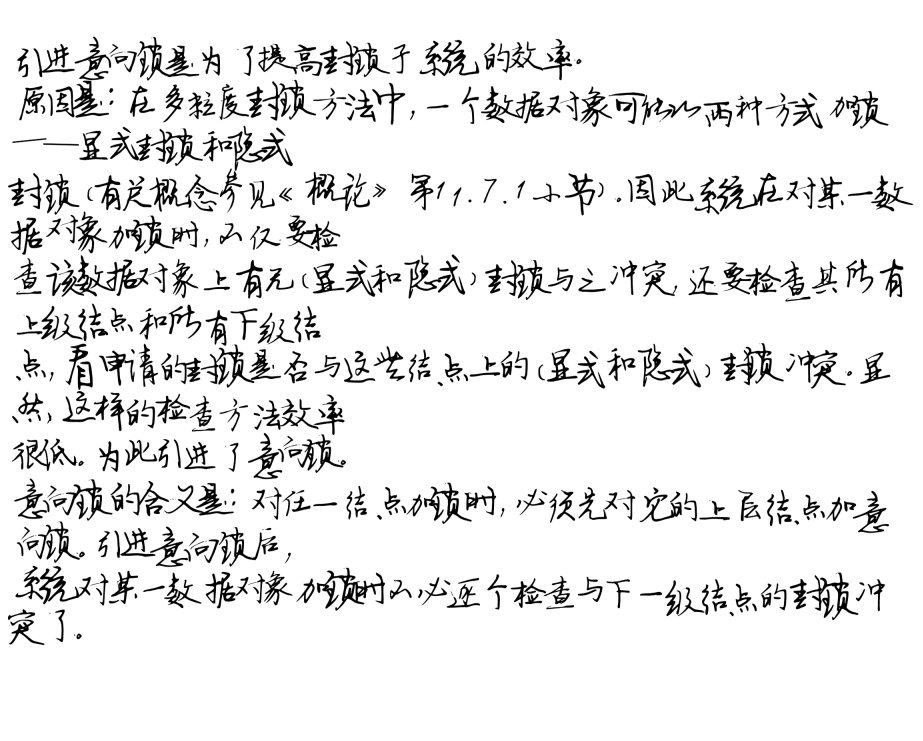 引进意向锁是为了提高封锁子系统的效率。
原因是：在多粒度封锁方法中，一个数据对象可能以两种方式加锁
——显式封锁和隐式
封锁（有关概念参见《概论》第11.7.1小节）。因此系统在对某一数
据对象加锁时，不仅要检
查该数据对象上有无（显式和隐式）封锁与之冲突，还要检查其所有
上级结点和所有下级结
点，看申请的封锁是否与这些结点上的（显式和隐式）封锁冲突。显
然，这样的检查方法效率
很低。为此引进了意向锁。
意向锁的含义是：对任一结点加锁时，必须先对它的上层结点加意
向锁。引进意向锁后，
系统对某一数据对象加锁时不必逐个检查与下一级结点的封锁冲
突了。